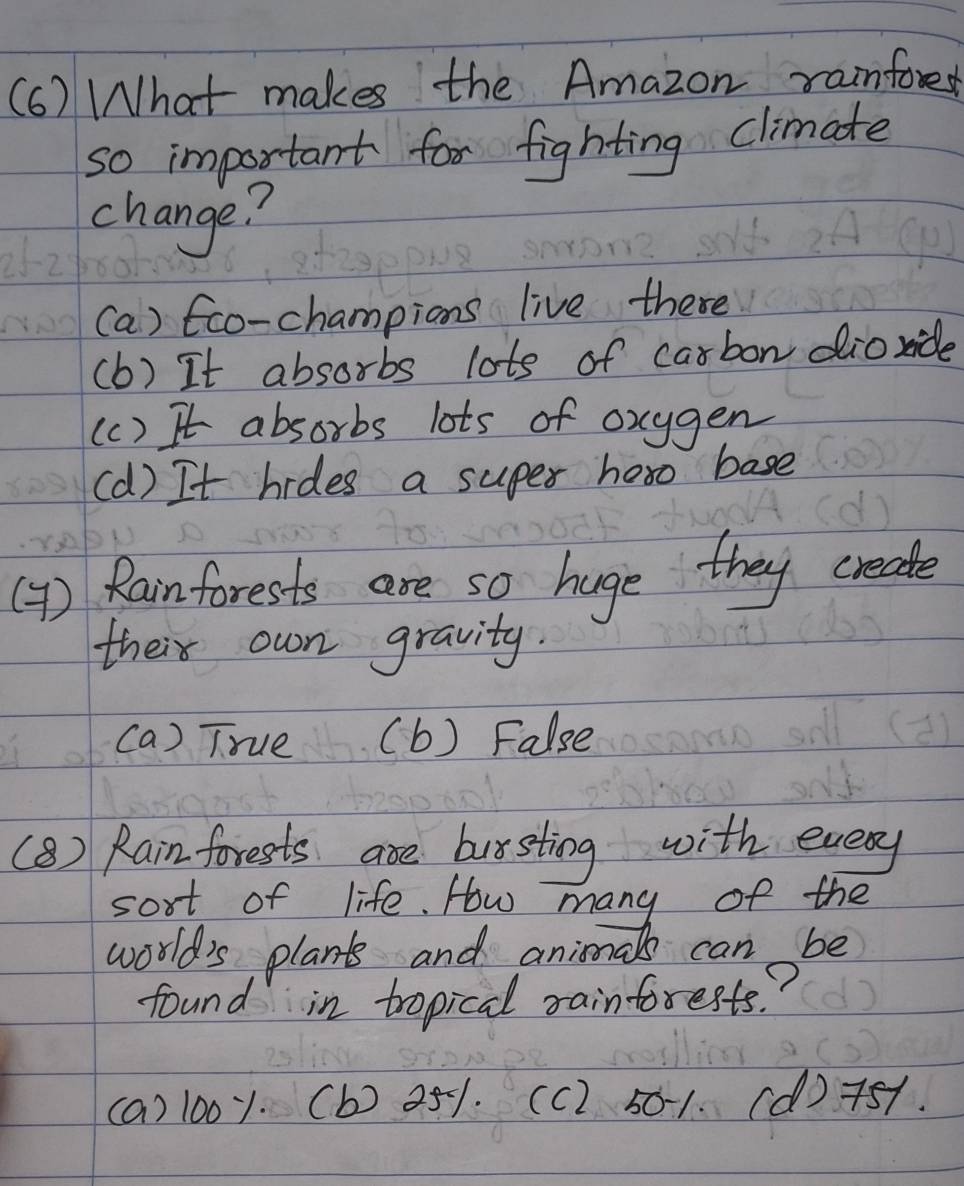 (6) What makes the Amazon rainforest
so important for fighting climate
change?
(a) Eco-champions live there
(b) It absorbs lots of carbon dioxide
(c) It absorbs lots of oxygen
(d) It hides a super hero base
(7) Rainforests are so huge they create
their own gravity.
(a) True (b) False
(8) Rainforests are bursting with every
sort of life. How many of the
world's plants and animals can be
found in tropical rainforests.?
(a) 100%. (b) 25%. (c) 50%. (d) 75%.